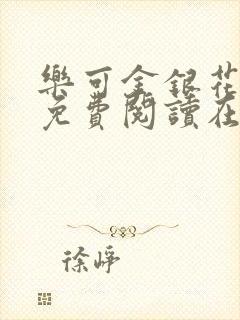 樂可金銀花
免費閱讀在
徐崢